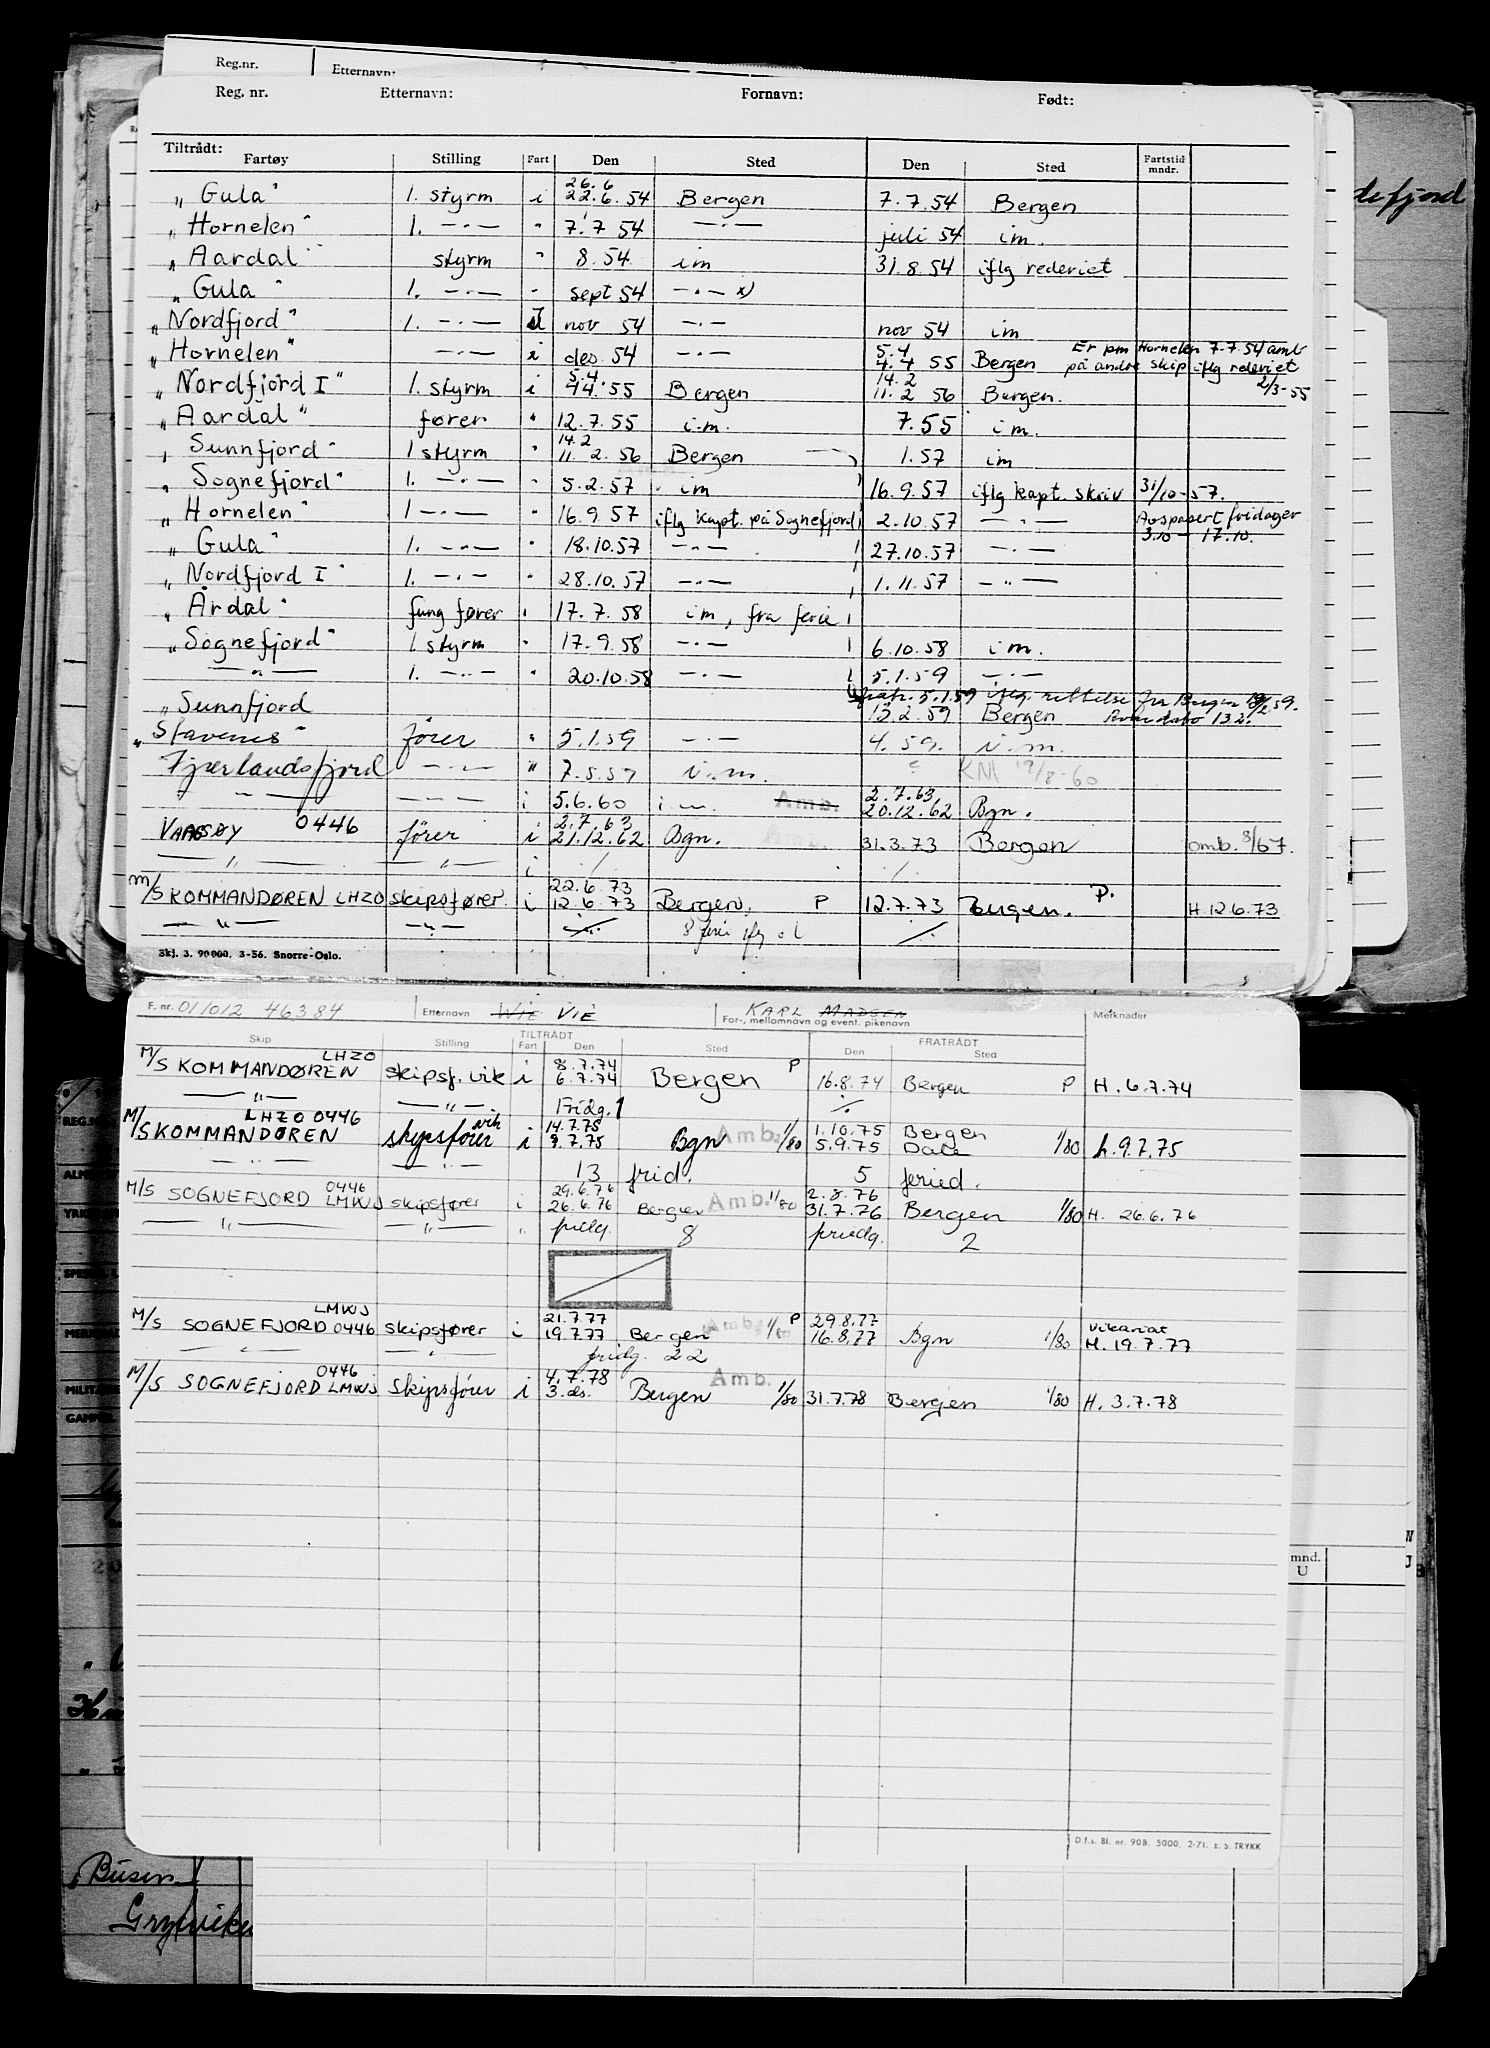 Reg.nr. Etternavn:
Reg. nr. Etternavn: Fornavn: Født:
Tiltrådt:
Fartøy Stilling Fart Den Sted Den Sted Fartstid mndr.
26.6
„Gula" 1. styrm i 22.6.54 Bergen 7.7.54 Bergen
„Hornelen" 1. —·— " 7.7 54 —·— juli 54 i m.
„Aardal" styrm " 8.54 i m 31.8.54 iflg rederiet
„Gula" 1. —·— " sept 54 —·— x)
„Nordfjord" 1. —·— nov 54 —·— nov 54 im
5.4 Er pm Hornelen 7.7.54 amb
„Hornelen" —·— i des. 54 —·— 4.4 55 Bergen på andre skip iflg rederiet
5.4. 14.2 2/3-55
„Nordfjord I" 1. styrm i 44.55 Bergen 11.2 56 Bergen.
„Aardal" fører " 12.7.55 i.m. 7.55 i m.
14.2
„Sunnfjord" 1 styrm " 11.2.56 Bergen 1.57 im
„Sognefjord" 1. —·— " 5.2.57 im 16.9.57 iflg kapt. skriv 31/10-57.
„Hornelen" 1 —·— " 16.9.57 iflg kapt. på Sognefjord 2.10.57 —·— Avspasert fridager
3.10 - 17.10.
„Gula" 1. —·— " 18.10.57 —·— 27.10.57 —·—
„Nordfjord I" 1. —·— " 28.10.57 —·— 1.11.57 —"—
„Årdal" fung fører " 17.7.58 im, fra ferie
„Sognefjord" 1. styrm " 17.9.58 —·— 6.10.58 i m.
—"— 1. —·— " 20.10.58 —·— 5.1.59 —·—
fratr. 5.1.59 iflg. rettelse fra Bergen
„Sunnfjord 13.2.59 Bergen
„Stavenes" fører " 5.1.59 —·— 4.59. i.m.
Fjærlandsfjord —·— " 7.5.59 i.m. ? KM 19/8-60
2.7.63
—"— —·— i 5.6.60 i m. Amb. 20.12.62 Bgn.
2.7.63
VAAGSØY 0446 fører i 21.12.62 Bgn. Amb. 31.3.73 Bergen omb. 8/67.
—"— —"— i
22.6.73
M/S KOMMANDØREN LHZO skipsfører. i 12.6.73 Bergen. P 12.7.73 Bergen. P. H.12.6.73
—"— —"— 8 ferie
Skj. 3. 90 000. 3-56. Snorre-Oslo.
F. nr. 011012 46384 Etternavn WIE VIE KARL MADSEN
For-, mellomnavn og event. pikenavn Merknader
TILTRÅDT FRATRÅDT
Skip Stilling Fart Den Sted Den Sted
LHZO 8.7.74
M/S KOMMANDØREN skipsf. vik i 6.7.74 Bergen P 16.8.74 Bergen P H. 6.7.74
—"— —"— Fridg. 1 ·/.
LHZO 0446 vik 14.7.75 1.10.75 Bergen
M/S KOMMANDØREN skipsfører i 9.7.75 Bgn Amb. 1/80 5.9.75 Dale 1/80 h. 9.7.75
—"— —"— 13 frid. 5 feried.
0446 29.6.76 2.8.76
M/S SOGNEFJORD LMWJ skipsfører i 26.6.76 Bergen Amb. 1/80 31.7.76 Bergen 1/80 H. 26.6.76
—"— —"— " fridg. 8 friedg. 2
LMWJ 21.7.77 P 29.8.77 Vikariat
M/S SOGNEFJORD 0446 skipsfører i 19.7.77 Bergen Amb. 1/80 16.8.77 Bgn 1/80 H. 19.7.77
—"— —"— fridg. 22
0446 4.7.78
M/S SOGNEFJORD LMWJ Skipsfører i 3. ds. Bergen Amb. 1/80 31.7.78 Bergen 1/80 H. 3.7.78
D.f.s. Bl. nr. 90B. 5000. 2-71. E. S. TRYKK
mnd.
U